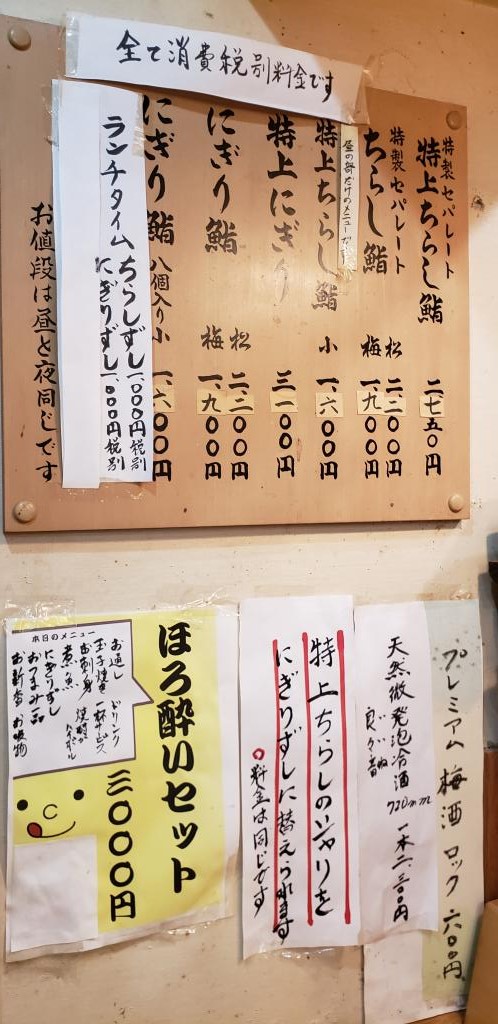 全て消費税別料金です
特製セパレート
特上ちらし鮨 二、七五〇円
特製セパレート
ちらし鮨 松 二、二〇〇円
梅 一、九〇〇円
昼の部だけのメニュー
特上ちらし鮨 小 一、六〇〇円
特上にぎり 三、一〇〇円
にぎり鮨 松 二、二〇〇円
梅 一、九〇〇円
にぎり鮨 八個入り 小 一、六〇〇円
ランチタイム ちらしずし 一、〇〇〇円 税別
にぎりずし 一、〇〇〇円 税別
お値段は昼と夜同じです
プレミアム梅酒 ロック 六〇〇円
天然微発泡冷酒 720mm 一本二、三〇〇円
特上ちらしのシャリを
にぎりずしに替えられます
料金は同じです
ほろ酔いセット
三〇〇〇円
本日のメニュー
お通し ドリンク
玉子焼き 一杯サービス
お刺身
煮魚
にぎりずし
おつまみ一品
お新香 お吸物